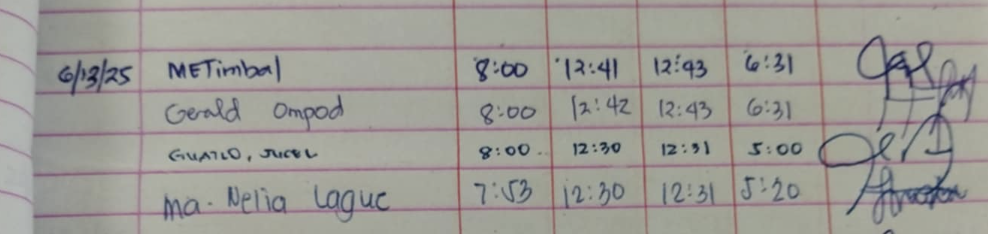 6/13/25 METimbal 8:00 12:41 12:43 6:31
Gerald Ompod 8:00 12:42 12:43 6:31
GUATLO, JUCEL 8:00 12:30 12:31 5:00
Ma. Nelia Laguc 7:53 12:30 12:31 5:20